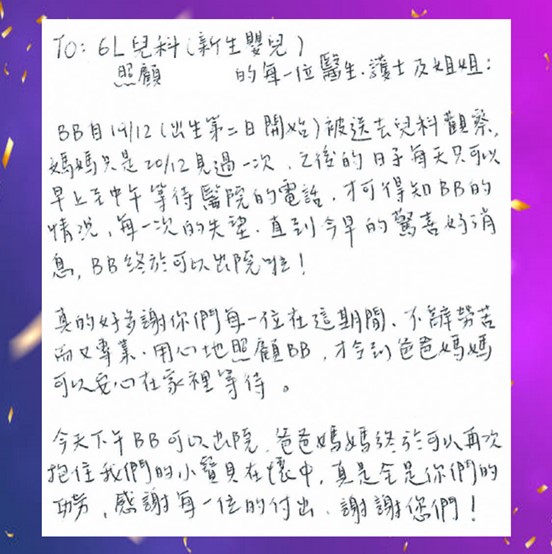 TO: 6L 兒科(新生嬰兒)
照顧 的每一位醫生.護士及姐姐:
BB自19/12(出生第二日開始)被送去兒科觀察,
媽媽只是20/12見過一次,之後的日子每天只可以
早上至中午等待醫院的電話,才可得知BB的
情況,每一次的失望.直到今早的驚喜好消
息,BB終於可以出院啦!
真的好多謝你們每一位在這期間、不辭勞苦
而又專業.用心地照顧BB,才令到爸爸媽媽
可以安心在家裡等待。
今天下午BB可以出院,爸爸媽媽終於可以再次
抱住我們的小寶貝在懷中,真是全是你們的
功勞,感謝每一位的付出.謝謝您們!